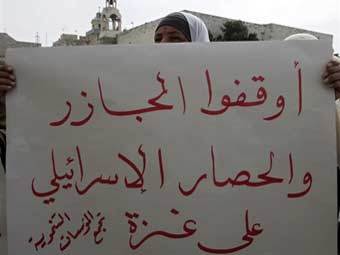 أوقفوا المجازر
والحصار الإسرائيلي
على غزة
تجمع المؤسسات التنموية